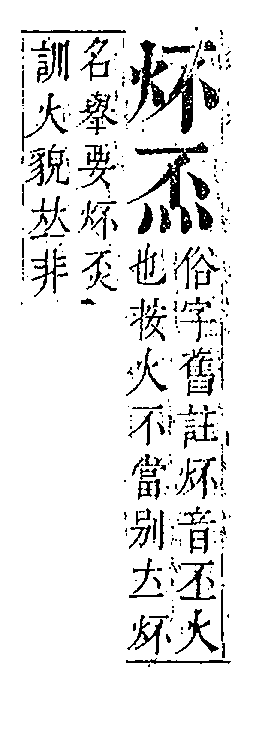 炋
俗字舊註炋音丕火
也按火不當别立炋
名舉要炋
訓火貌𠀤非